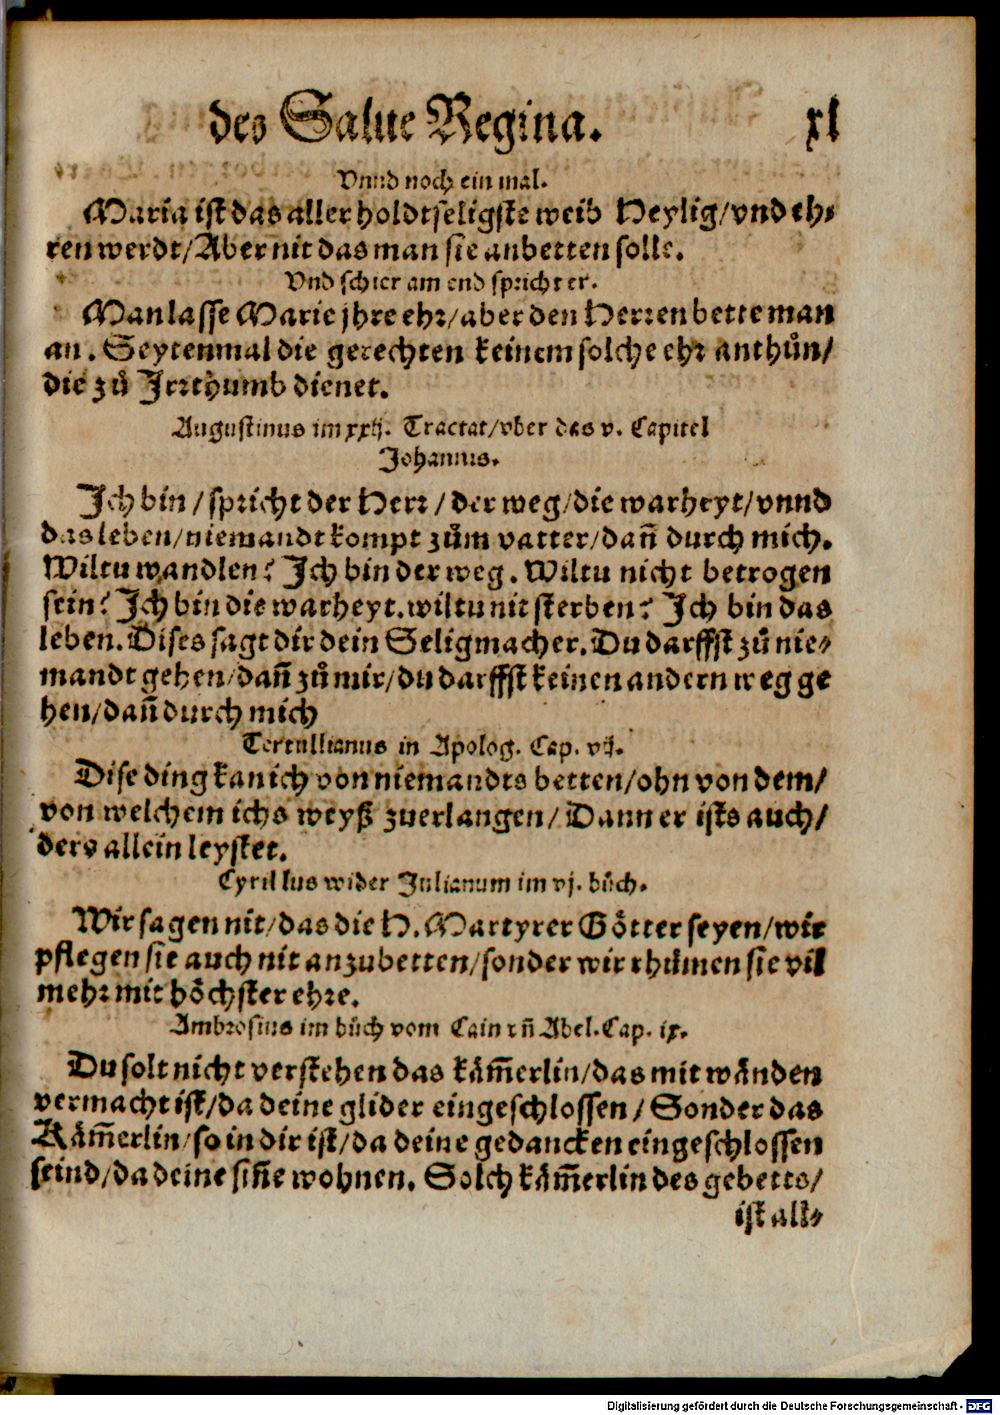 des Salue Regina. xl
Vnnd noch ein mal.
Maria ist das aller holdtseligste weib Heylig/vnd eh⸗
ren werdt/Aber nit das man sie anbetten solle.
Vnd schier am end spricht er.
Man lasse Marie jhre ehr/aber den Herren bette man
an. Seytenmal die gerechten keinem solche ehr anthůn/
die zů Irrthumb dienet.
Augustinus im xxij. Tractat/vber das v. Capitel
Johannis.
Ich bin/spricht der Herr/der weg/die warheyt/vnnd
das leben/niemandt kompt zům vatter/dañ durch mich.
Wiltu wandlen? Ich bin der weg. Wiltu nicht betrogen
sein? Ich bin die warheyt. wiltu nit sterben? Ich bin das
leben. Dises sagt dir dein Seligmacher. Du darffst zů nie⸗
mandt gehen/dañ zů mir/du darffst keinen andern weg ge
hen/dañ durch mich
Tertullianus in Apolog. Cap. vij.
Dise ding kan ich von niemandts betten/ohn von dem/
von welchem ichs weyß zuerlangen/Dann er ists auch/
ders allein leystet.
Cyrillus wider Julianum im vj. bůch.
Wir sagen nit/das die H. Martyrer Götter seyen/wir
pflegen sie auch nit anzubetten/sonder wir rhůmen sie vil
mehr mit höchster ehre.
Ambrosius im bůch vom Cain vñ Abel. Cap. ix.
Du solt nicht verstehen das käm̃erlin/das mit wänden
vermacht ist/da deine glider eingeschlossen/Sonder das
Käm̃erlin/so in dir ist/da deine gedancken eingeschlossen
seind/da deine siñe wohnen. Solch käm̃erlin des gebetts/
ist all⸗
Digitalisierung gefördert durch die Deutsche Forschungsgemeinschaft - DFG